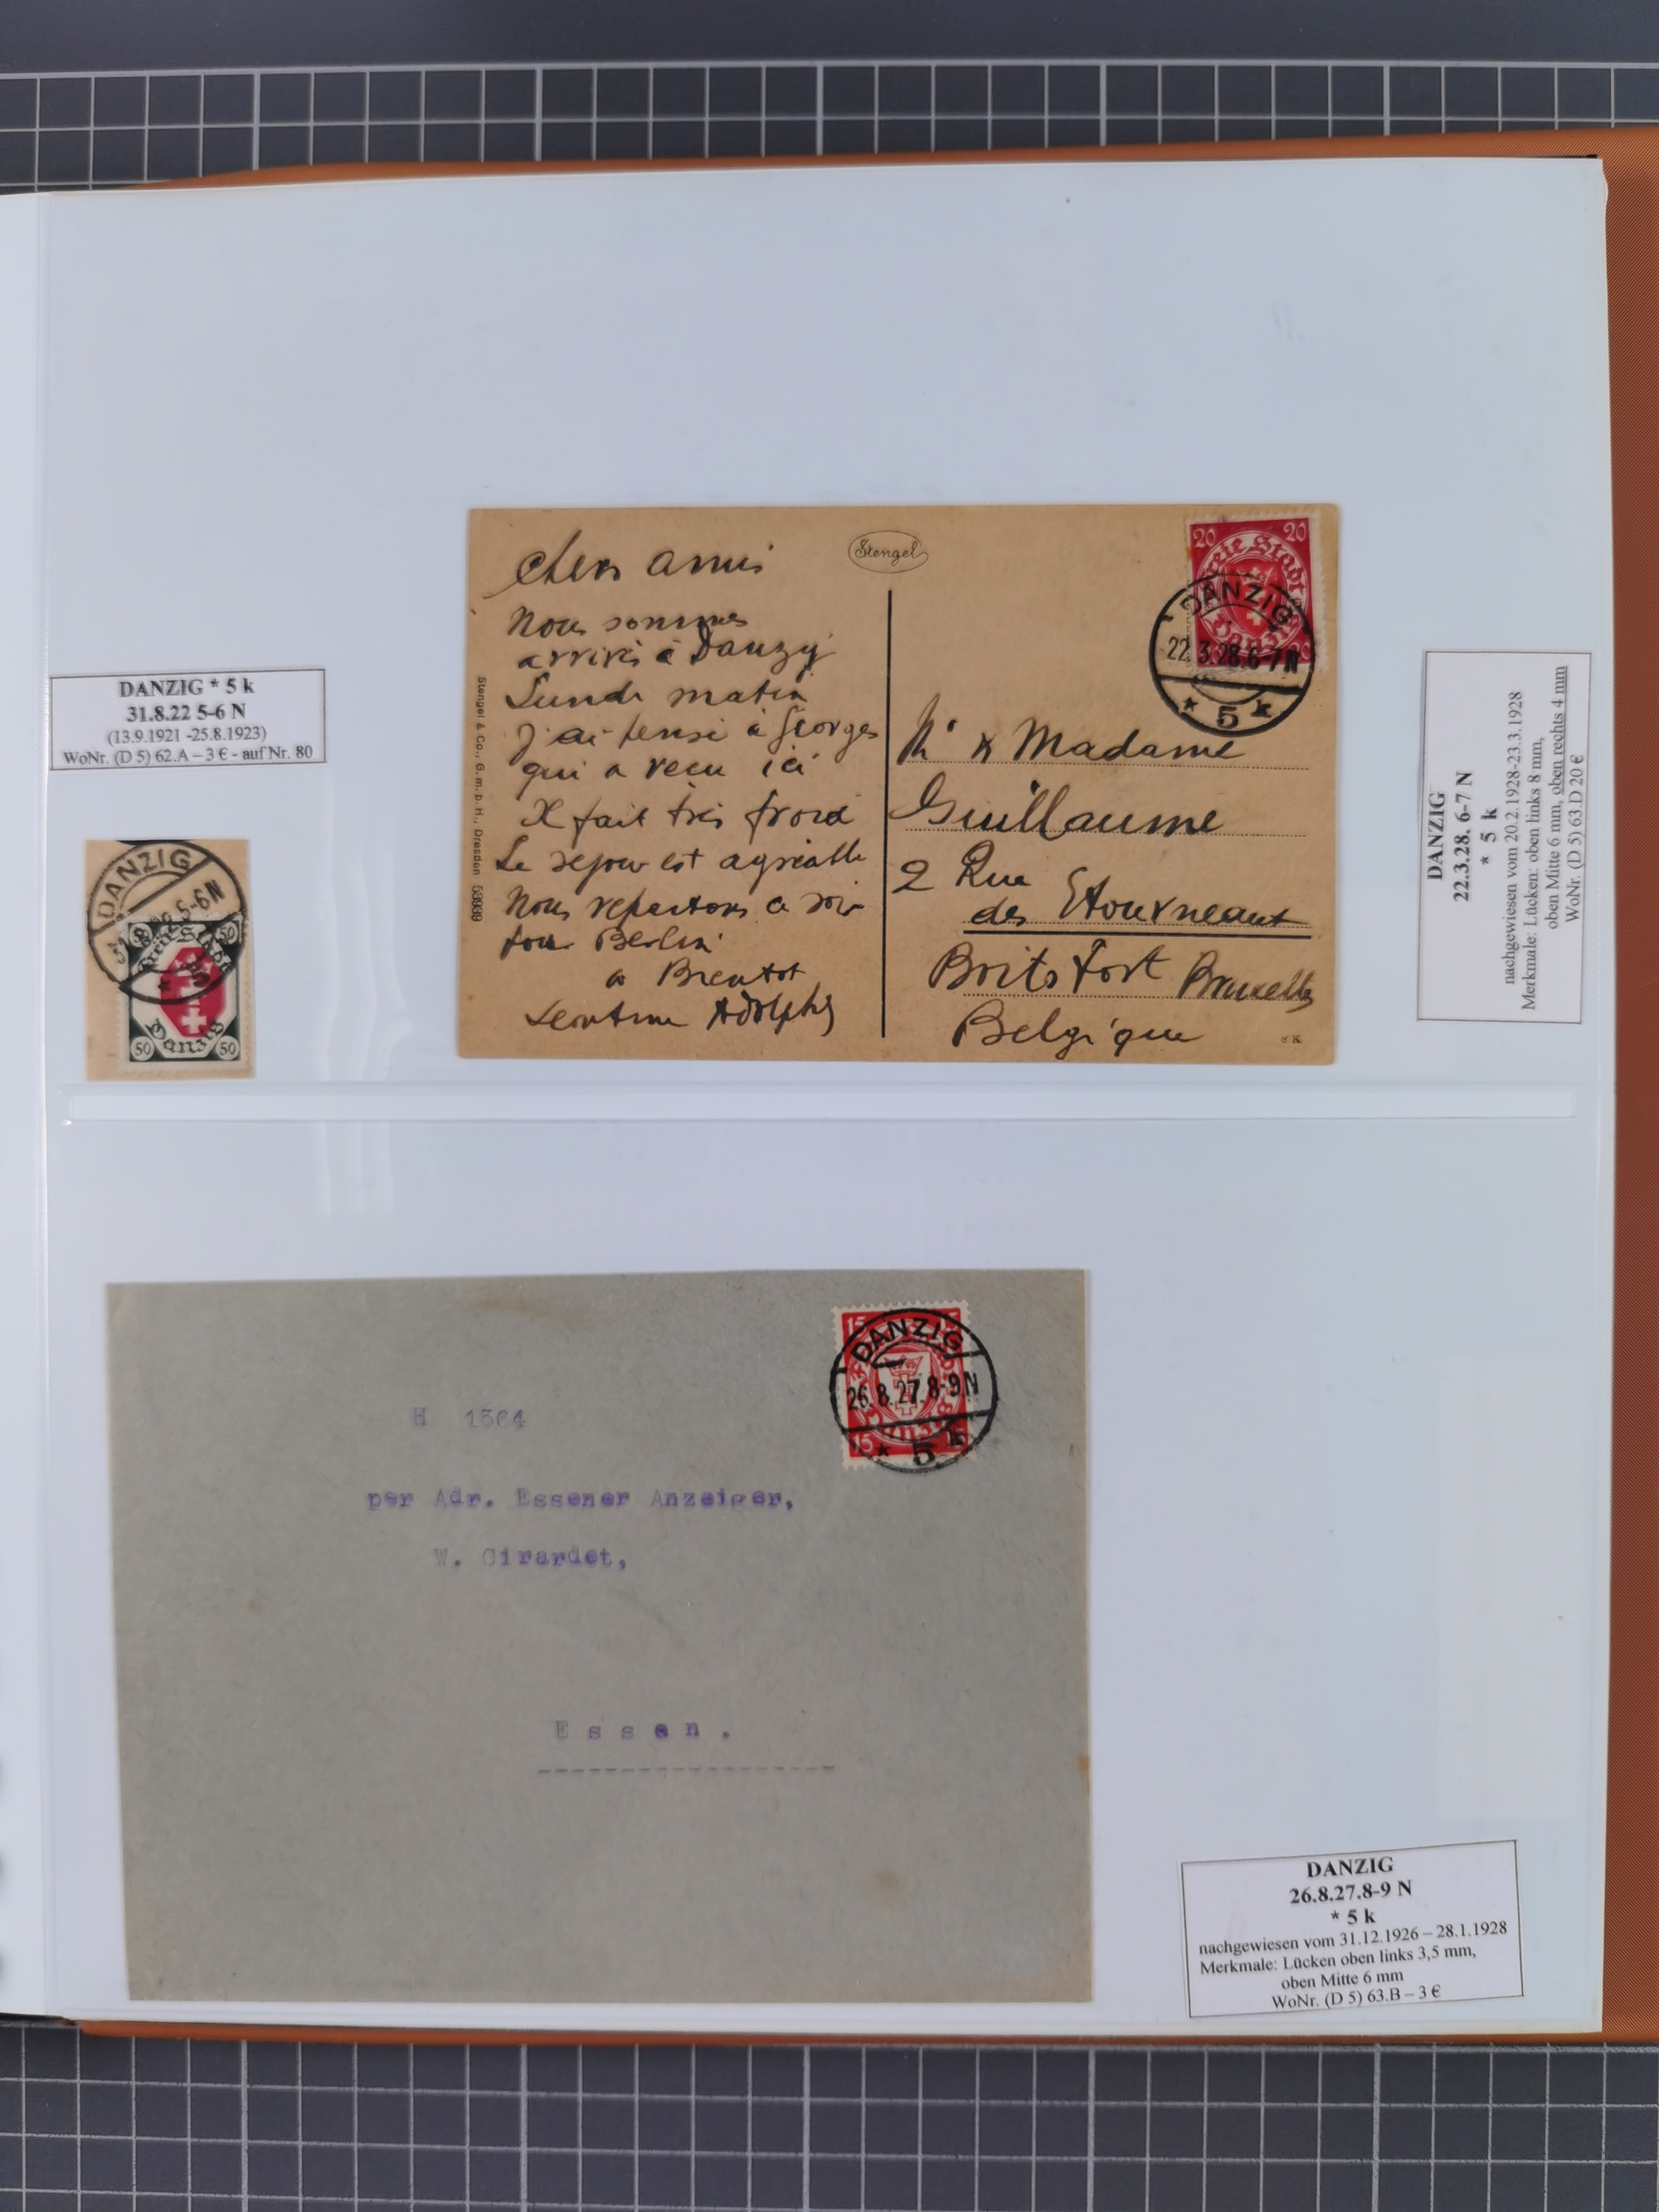 DANZIG * 5 k
31.8.22 5-6 N
(13.9.1921 -25.8.1923)
WoNr. (D 5) 62.A – 3 € - auf Nr. 80
DANZIG
5-6N
* 5
Freie Stadt
Danzig
50 50
50 50
Stengel
Chers amis
Nous sommes
arrivés à Danzig
Lundi matin
J'ai pensé à Georges
qui a vecu ici
Il fait très froid
Le sejour est agréable
Nous repartons ce soir
pour Berlin
a Bientot
Leontine Adolphe
Stengel & Co., G.m.b.H., Dresden
20 20
Freie Stadt
Danzig
DANZIG
22.3.28.6-7N
* 5 k
Mr & Madame
Guillaume
2 Rue
des Etourneaux
Boitsfort Bruxelles
Belgique
DANZIG
22.3.28. 6-7 N
* 5 k
nachgewiesen vom 20.2.1928-23.3.1928
Merkmale: Lücken: oben links 8 mm,
oben Mitte 6 mm, oben rechts 4 mm
WoNr. (D 5) 63.D 20 €
15
15
DANZIG
26.8.27.8-9N
* 5 k
H 1564
per Adr. Essener Anzeiger,
W. Girardet,
Essen.
DANZIG
26.8.27.8-9 N
* 5 k
nachgewiesen vom 31.12.1926 – 28.1.1928
Merkmale: Lücken oben links 3,5 mm,
oben Mitte 6 mm
WoNr. (D 5) 63.B – 3 €